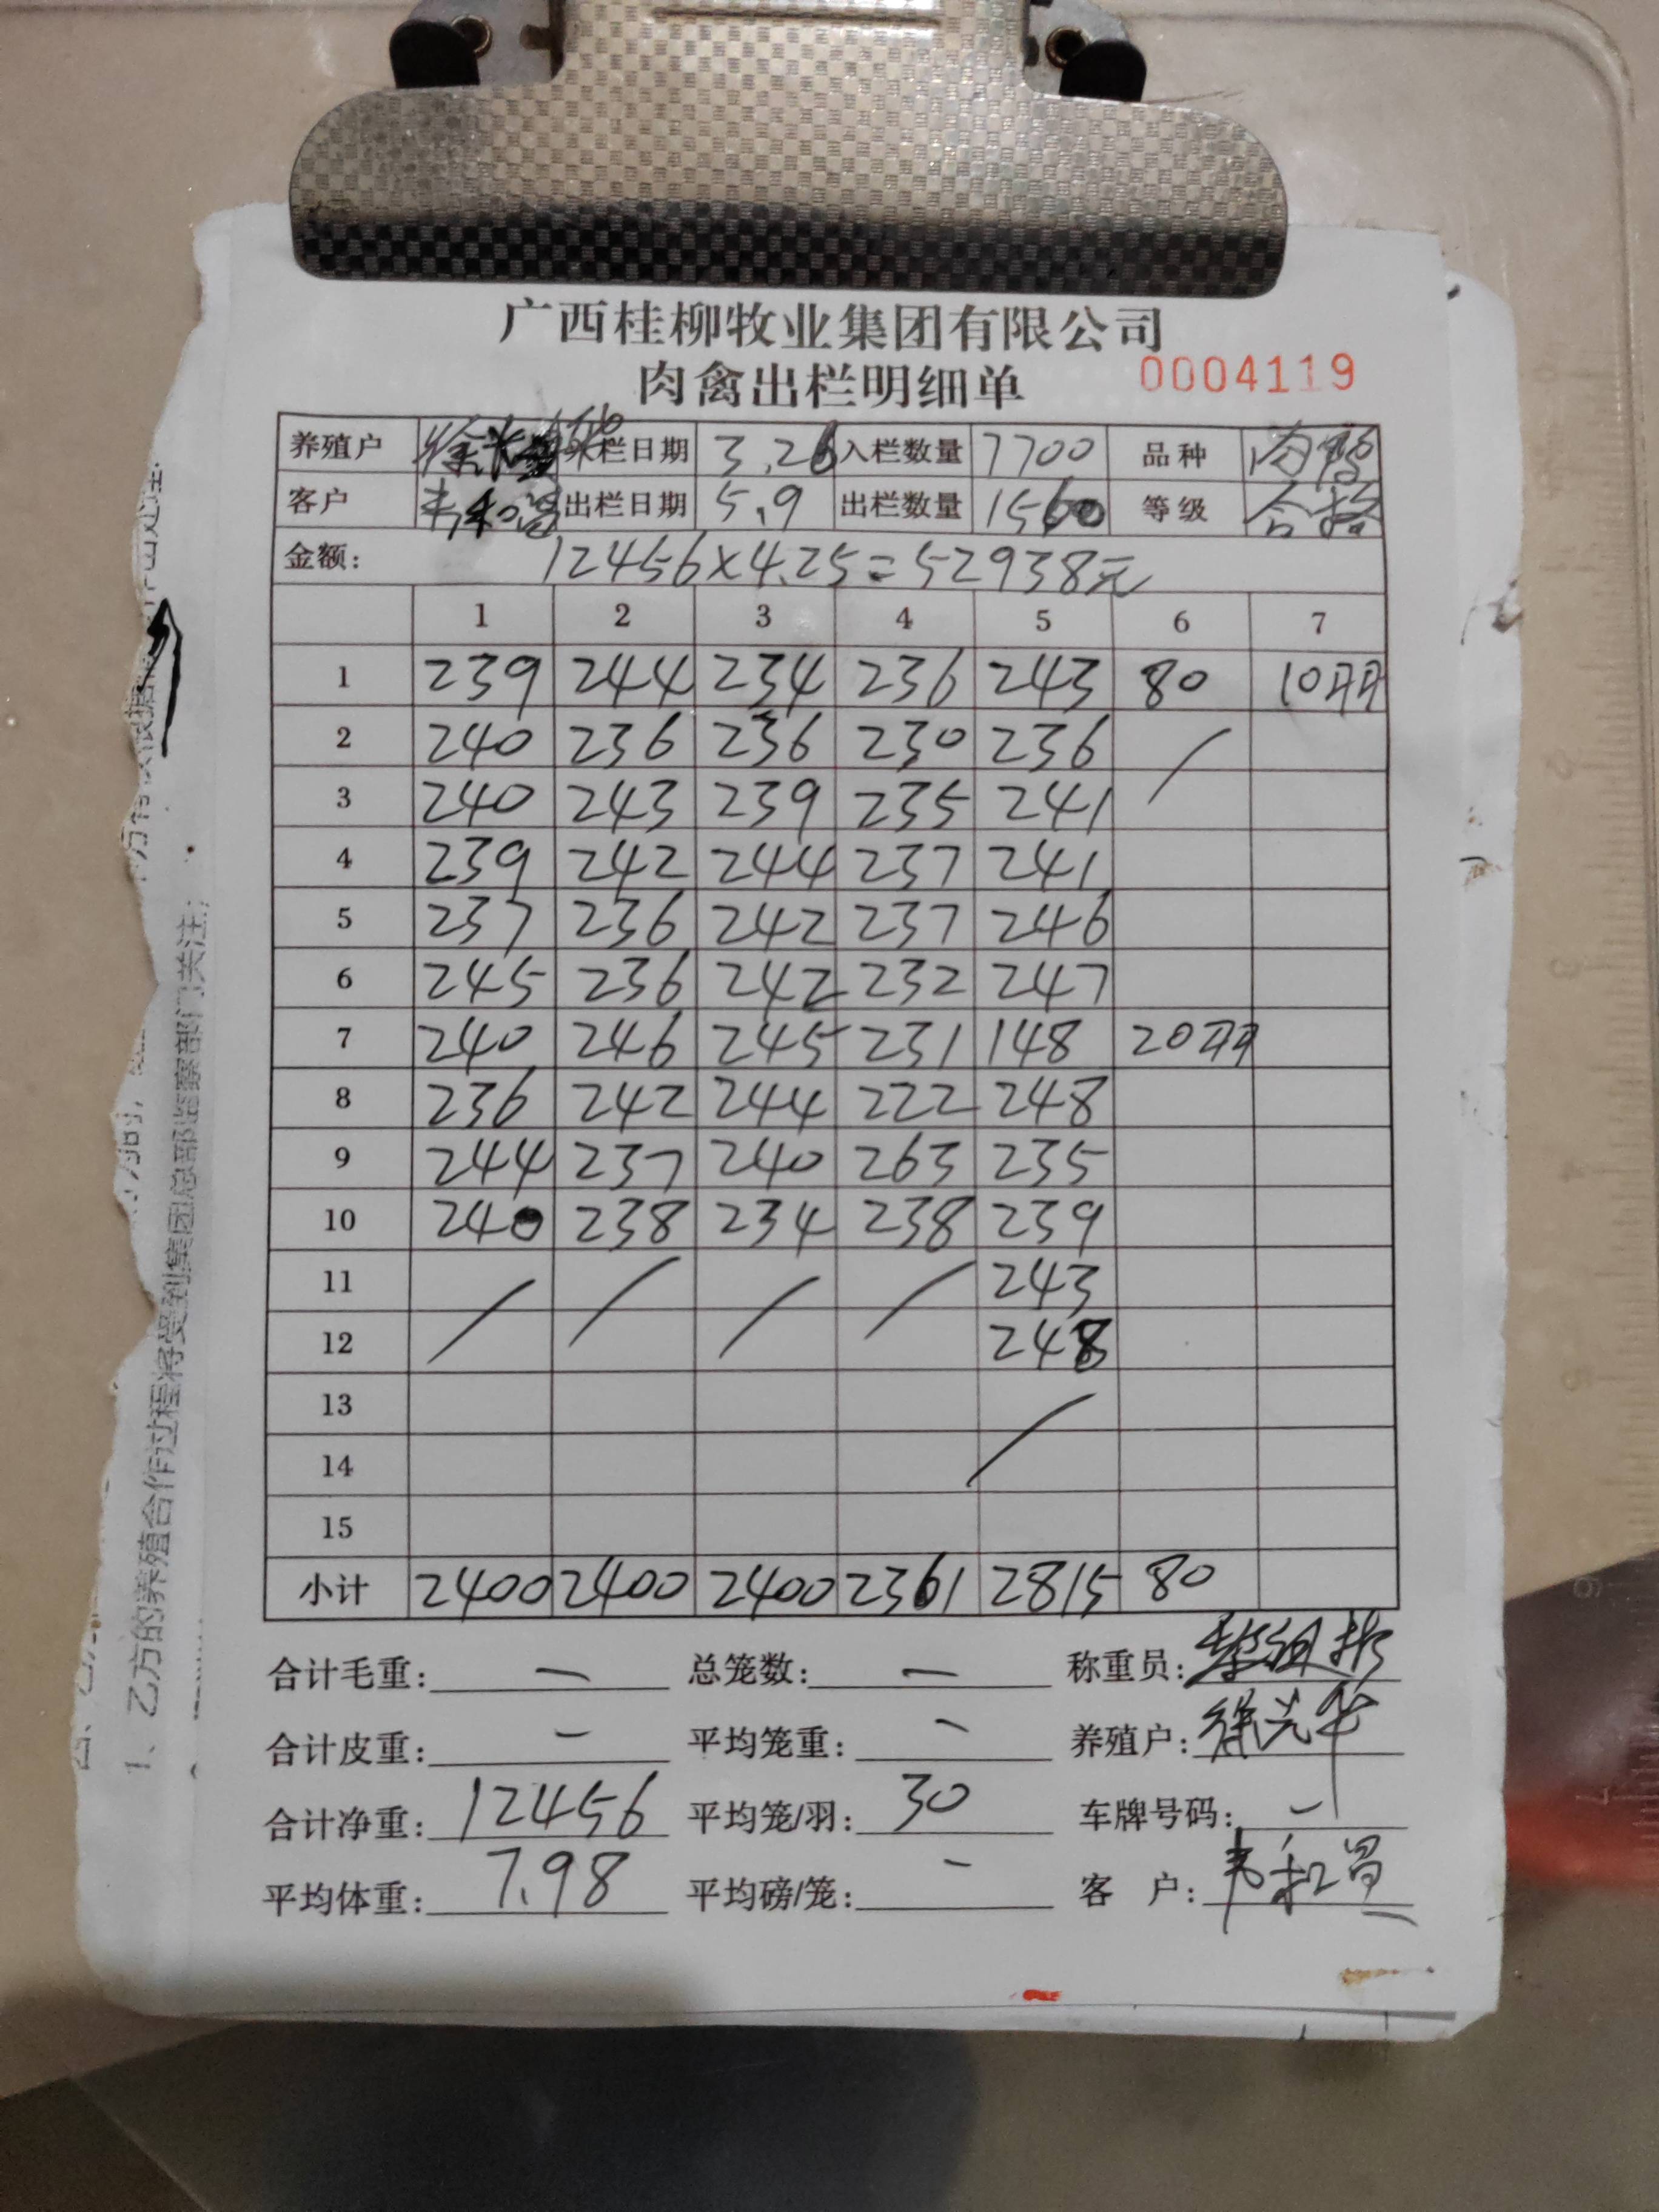 广西桂柳牧业集团有限公司
肉禽出栏明细单 0004119
养殖户 徐 栏日期 3.26 入栏数量 7700 品种 肉鸭
客户 韦和昌 出栏日期 5.9 出栏数量 1560 等级 合格
金额: 12456×4.25=52938元
1 2 3 4 5 6 7
1 239 244 234 236 243 80 10羽
2 240 236 236 230 236 /
3 240 243 239 235 241
4 239 242 244 237 241
5 237 236 242 237 246
6 245 236 242 232 247
7 240 246 245 231 148 20羽
8 236 242 244 222 248
9 244 237 240 263 235
10 240 238 234 238 239
11 / / / / 243
12 248
13 /
14
15
小计 2400 2400 2400 2361 2815 80
合计毛重: — 总笼数: — 称重员:
合计皮重: — 平均笼重: — 养殖户: 徐光华
合计净重: 12456 平均笼/羽: 30 车牌号码: —
平均体重: 7.98 平均磅/笼: — 客 户: 韦和昌
1、乙方的养殖合作过程将受到集团总部监察部门关注;